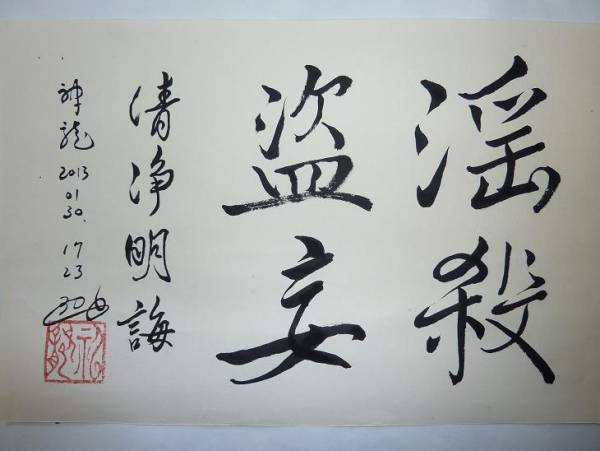 淫殺
盜妄
清淨明誨
神龍 2013 01 30. 17 23